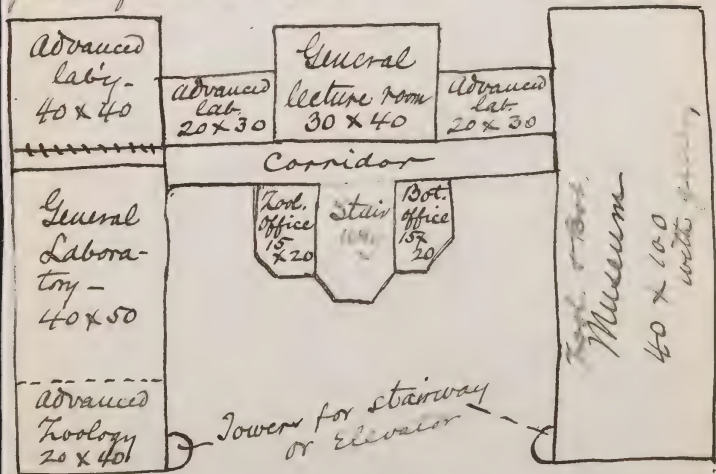 Advanced
lab'y-
40 x 40
Advanced
lab.
20 x 30
General
lecture room
30 x 40
Advanced
lab.
20 x 30
Corridor
General
Labora-
tory -
40 x 50
Zool.
office
15
x 20
Stair
Bot.
office
15 x
20
Zool. & Bot.
Museum
40 x 100
with
Advanced
Zoology
20 x 40
Towers for stairway
or Elevator